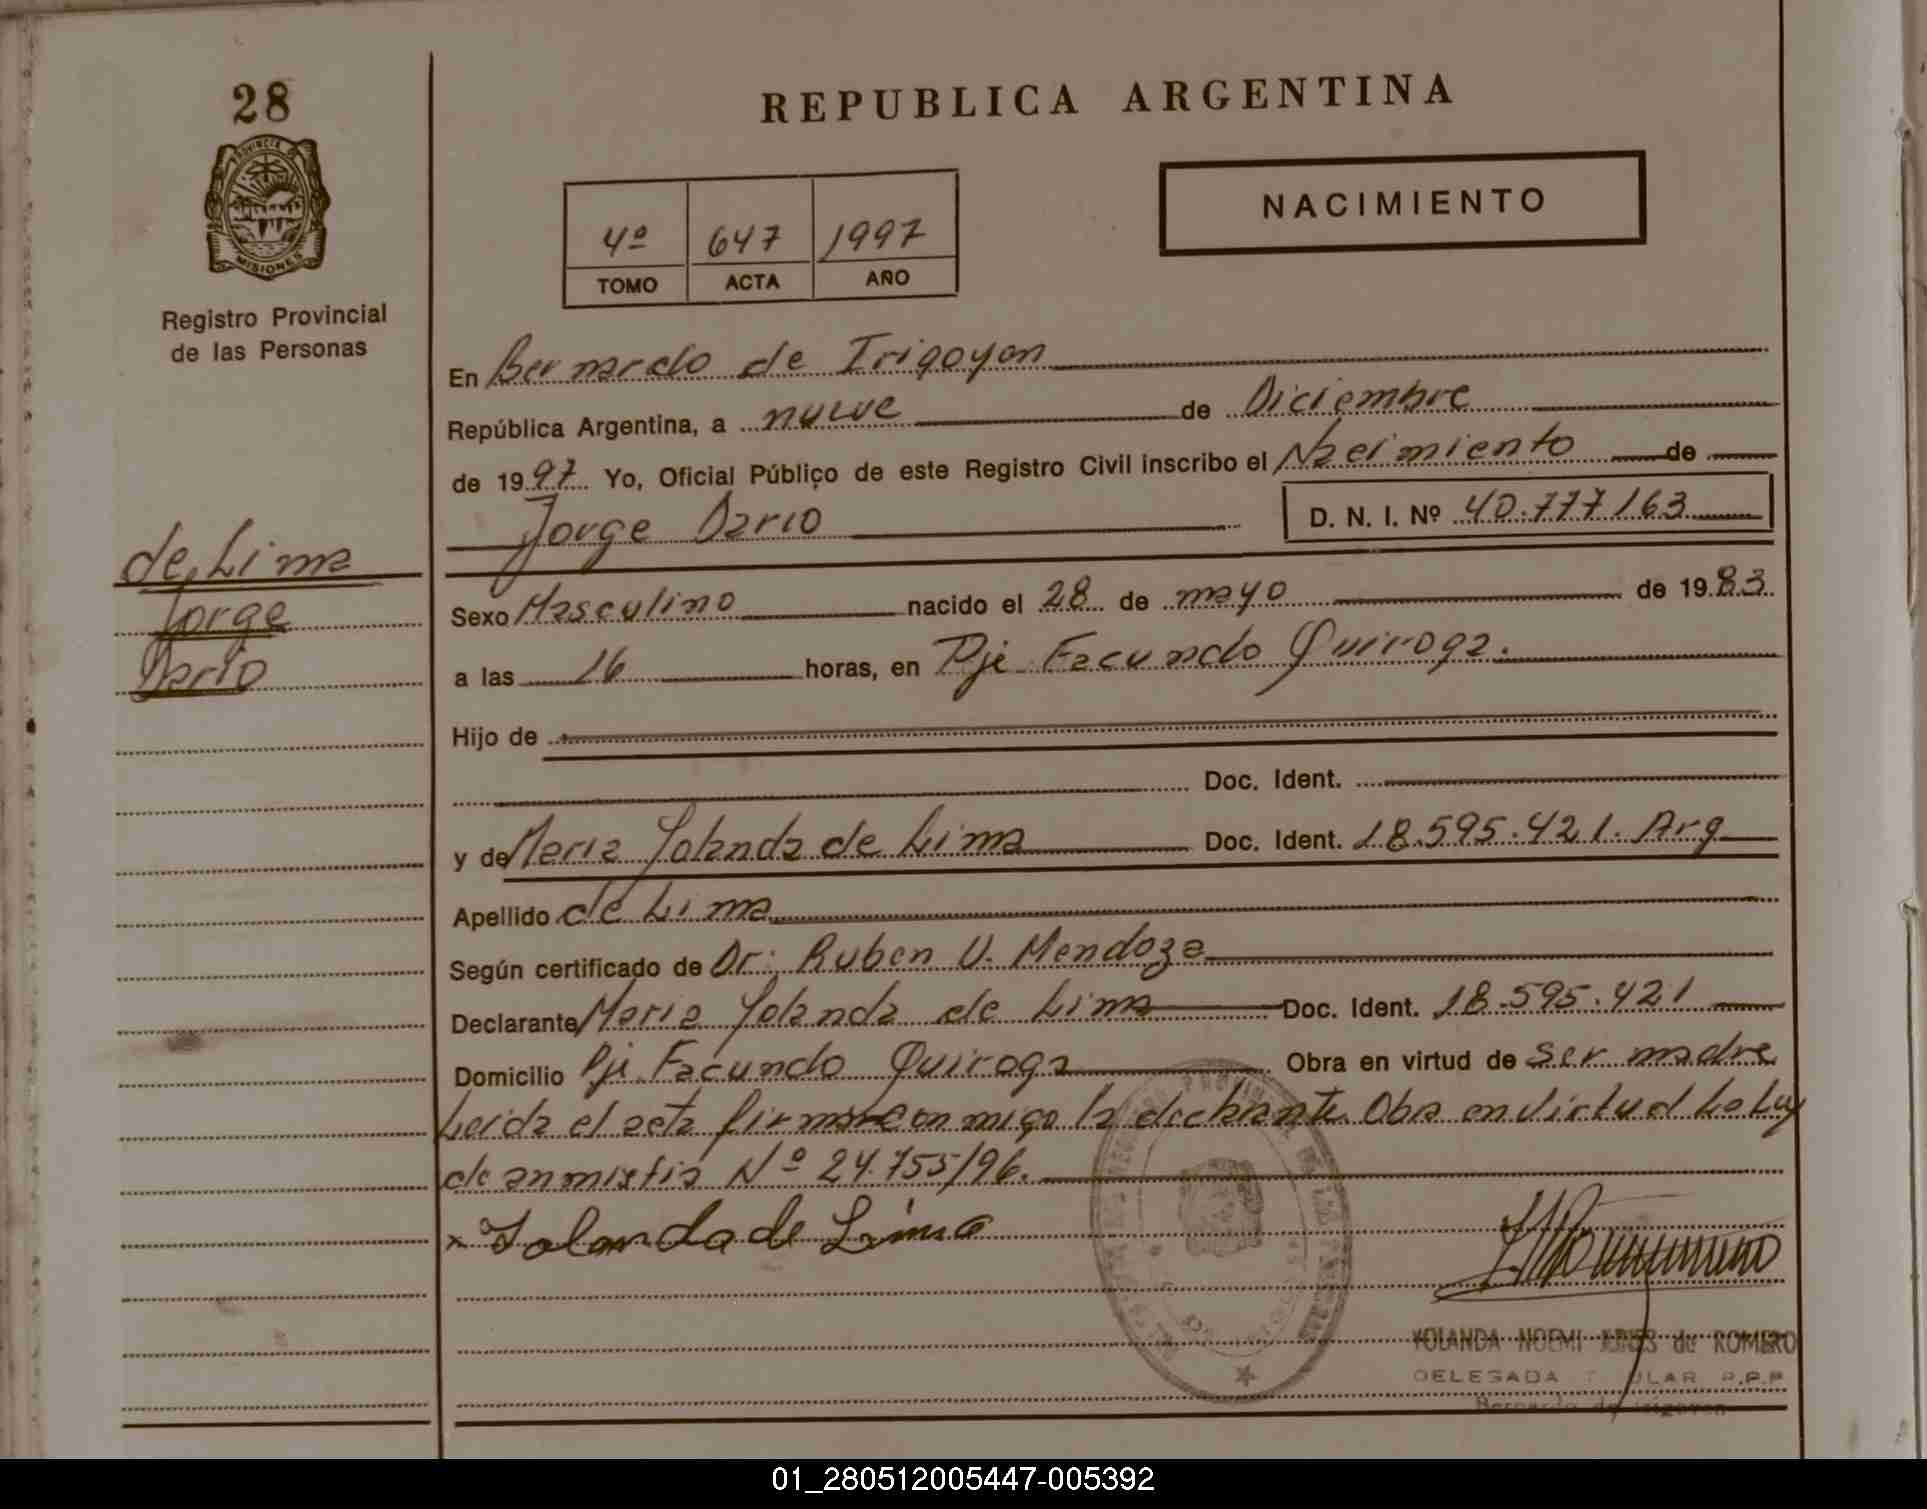 28
PROVINCIA DE
MISIONES
Registro Provincial
de las Personas
de Lima
Jorge
Dario
REPUBLICA ARGENTINA
NACIMIENTO
4º 647 1997
TOMO ACTA AÑO
En Bernardo de Irigoyen
República Argentina, a nueve de Diciembre
de 1997 Yo, Oficial Público de este Registro Civil inscribo el Nacimiento de
Jorge Dario D. N. I. Nº 40.777163
Sexo Masculino nacido el 28 de mayo de 1983
a las 16 horas, en Pje Facundo Quiroga.
Hijo de
Doc. Ident.
y de Maria Yolanda de Lima Doc. Ident. 18.595.421. Arg
Apellido de Lima
Según certificado de Dr: Ruben V. Mendoza
Declarante Maria Yolanda de Lima Doc. Ident. 18.595.421
Domicilio Pje Facundo Quiroga Obra en virtud de ser madre
Leida el acta firma con migo la declarante Obra en virtud La Ley
de anmistia Nº 24.755/96.
x Yolanda de Lima
YOLANDA NOEMI de ROMERO
DELEGADA TITULAR R.P.P
Bernardo de Irigoyen
01_280512005447-005392